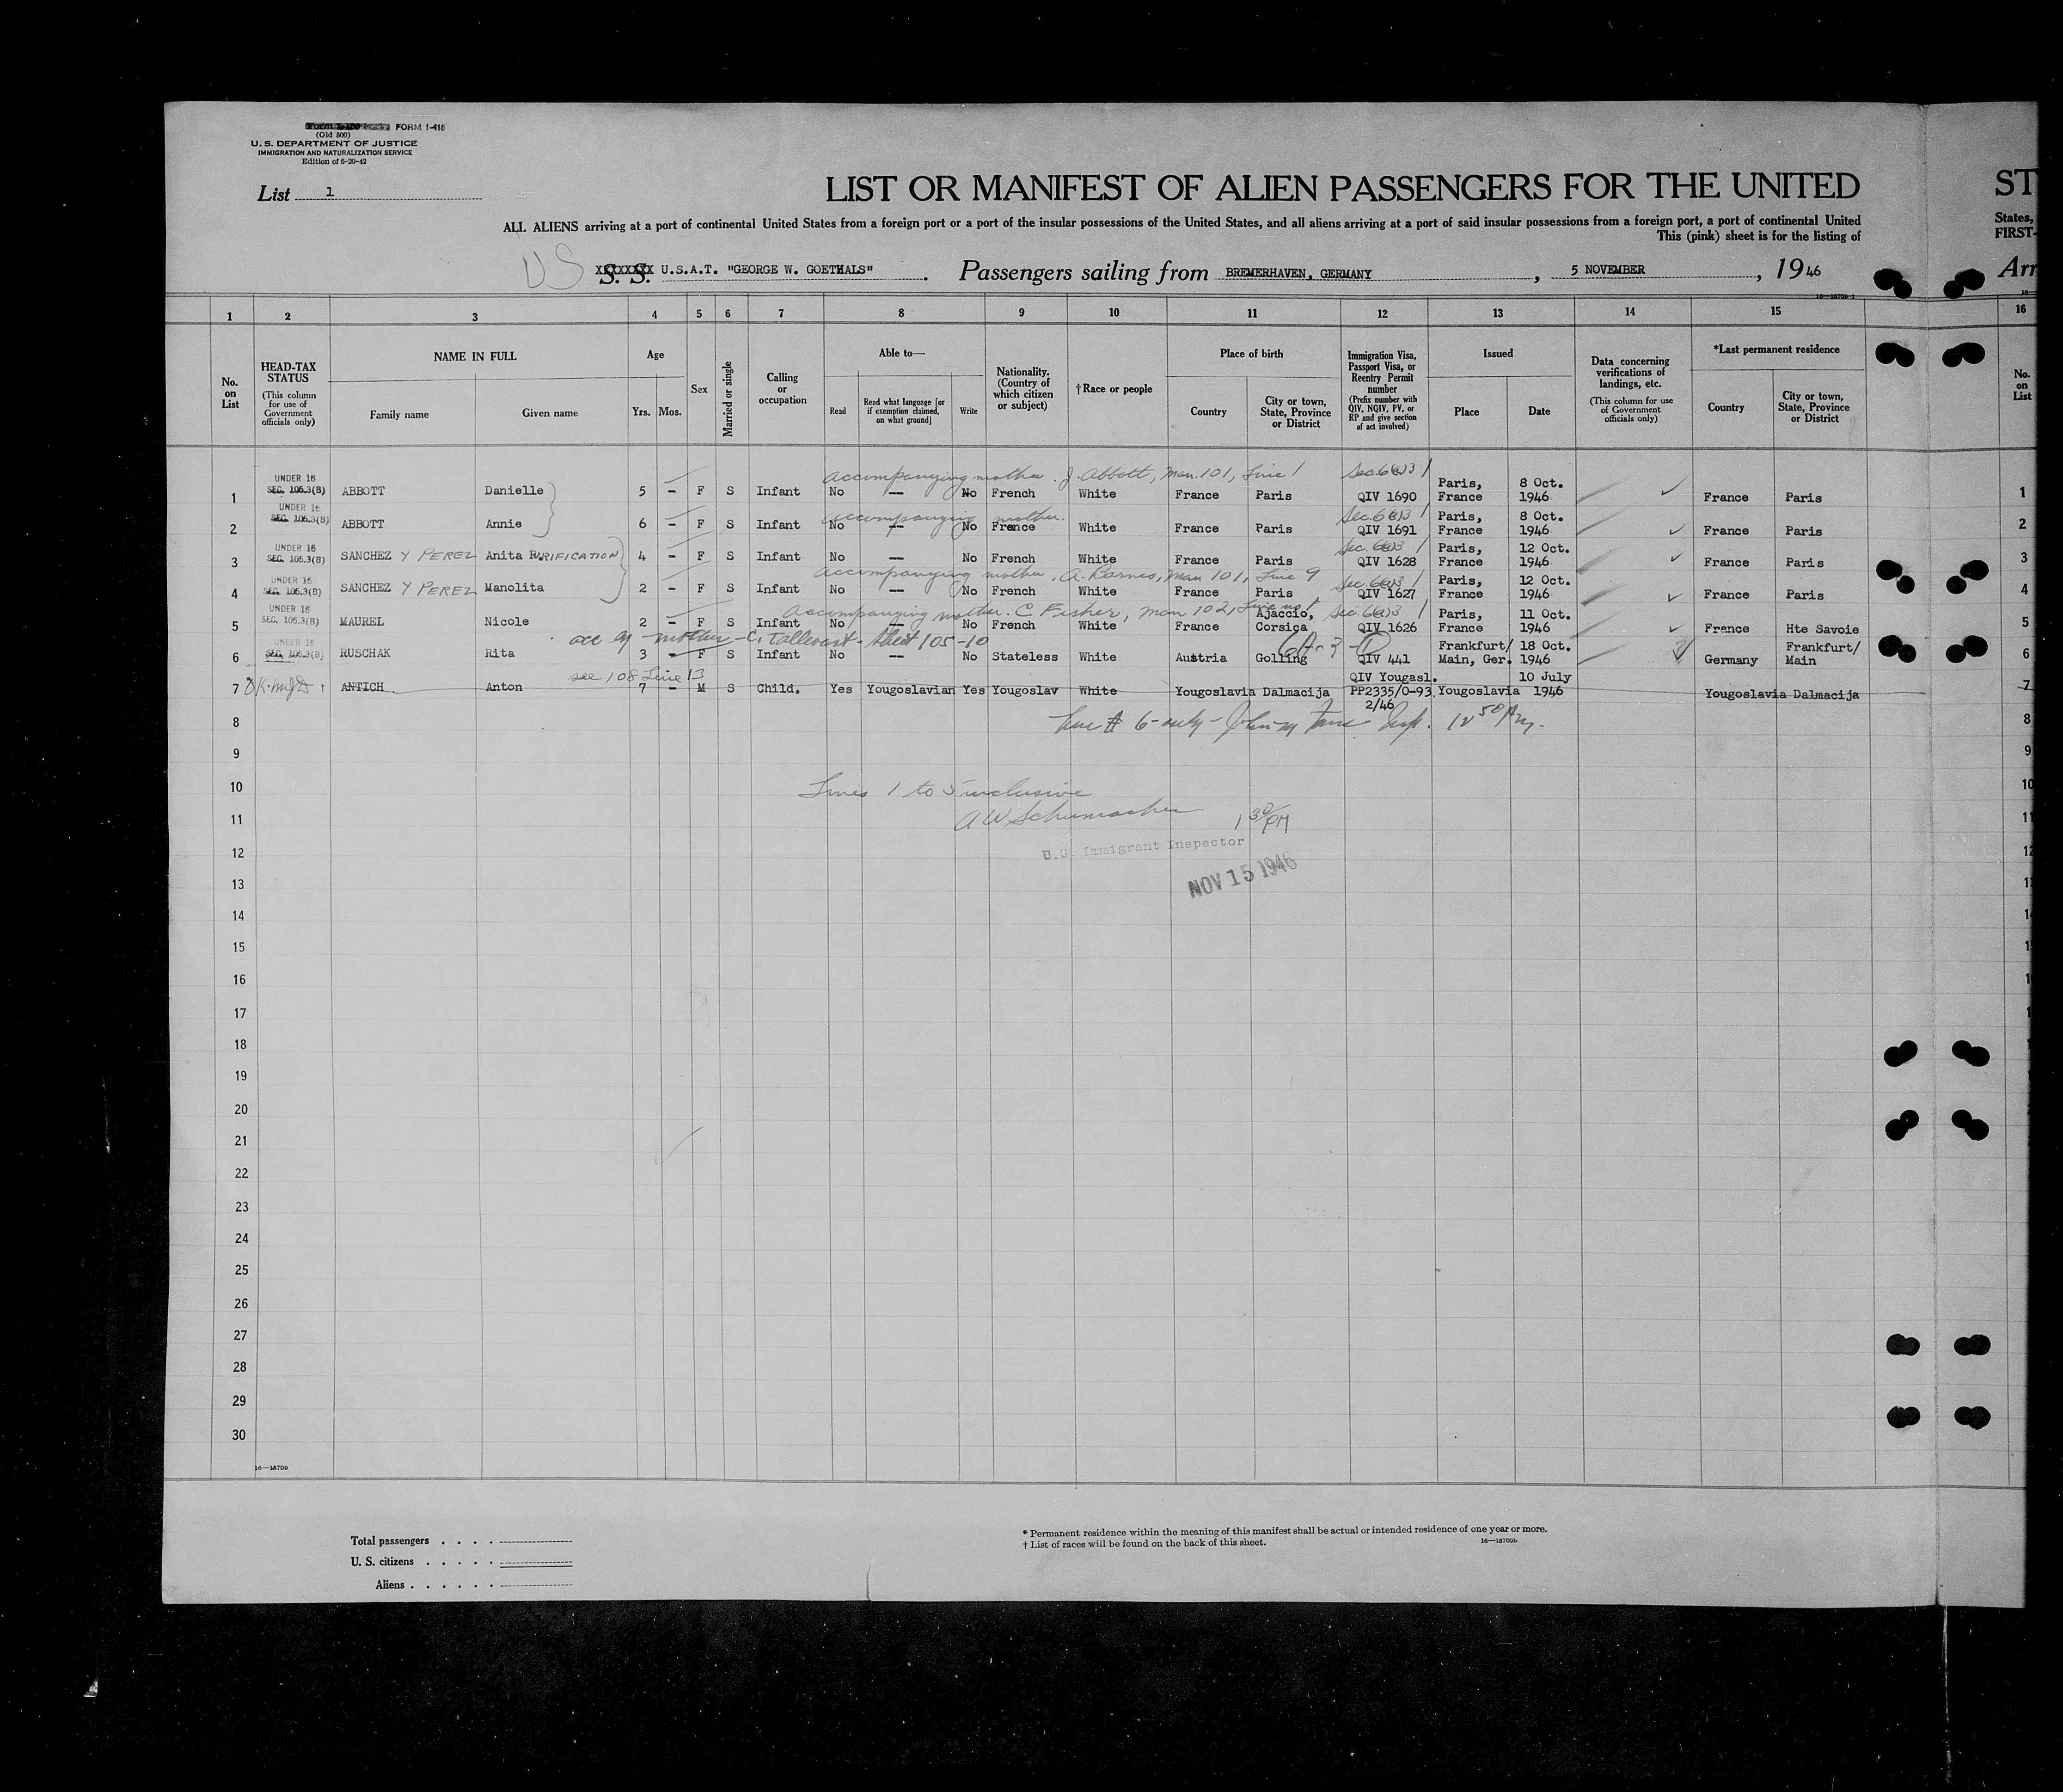 FORM I-416
(Old 500)
U. S. DEPARTMENT OF JUSTICE
IMMIGRATION AND NATURALIZATION SERVICE
Edition of 6-20-42
List 1
LIST OR MANIFEST OF ALIEN PASSENGERS FOR THE UNITED
ST
ALL ALIENS arriving at a port of continental United States from a foreign port or a port of the insular possessions of the United States, and all aliens arriving at a port of said insular possessions from a foreign port, a port of continental United
States,
This (pink) sheet is for the listing of
FIRST-
US S. S. U.S.A.T. "GEORGE W. GOETHALS". Passengers sailing from BREMERHAVEN, GERMANY, 5 NOVEMBER, 1946
Arr
16—18709-1
1 2 3 4 5 6 7 8 9 10 11 12 13 14 15 16
No. on List
HEAD-TAX STATUS
(This column for use of Government officials only)
NAME IN FULL
Family name
Given name
Age
Yrs. Mos.
Sex
Married or single
Calling or occupation
Able to—
Read
Read what language [or if exemption claimed, on what ground]
Write
Nationality. (Country of which citizen or subject)
†Race or people
Place of birth
Country
City or town, State, Province or District
Immigration Visa, Passport Visa, or Reentry Permit number
(Prefix number with QIV, NQIV, PV, or RP and give section of act involved)
Issued
Place
Date
Data concerning verifications of landings, etc.
(This column for use of Government officials only)
*Last permanent residence
Country
City or town, State, Province or District
No. on List
accompanying mother. J. Abbott, Man. 101, Line 1 Sec. 6(a)3
1 UNDER 16 SEC. 105.3(B) ABBOTT Danielle 5 - F S Infant No — No French White France Paris QIV 1690 Paris, France 8 Oct. 1946 France Paris 1
accompanying mother. Sec. 6(a)3
2 UNDER 16 SEC. 105.3(B) ABBOTT Annie 6 - F S Infant No — No France White France Paris QIV 1691 Paris, France 8 Oct. 1946 France Paris 2
Sec. 6(a)3
3 UNDER 16 SEC. 105.3(B) SANCHEZ Y PEREZ Anita PURIFICATION 4 - F S Infant No — No French White France Paris QIV 1628 Paris, France 12 Oct. 1946 France Paris 3
accompanying mother, A. Barnes, Man 101, Line 9 Sec. 6(a)3
4 UNDER 16 SEC. 105.3(B) SANCHEZ Y PEREZ Manolita 2 - F S Infant No — No French White France Paris QIV 1627 Paris, France 12 Oct. 1946 France Paris 4
accompanying mother. C Fisher, Man 102, Line no 1 Sec. 6(a)3
5 UNDER 16 SEC. 105.3(B) MAUREL Nicole 2 - F S Infant No — No French White France Ajaccio, Corsica QIV 1626 Paris, France 11 Oct. 1946 France Hte Savoie 5
mother - C. Tallevast - sheet 105-10
6 UNDER 16 SEC. 105.3(B) RUSCHAK Rita 3 - F S Infant No — No Stateless White Austria Golling QIV 441 Frankfurt/Main, Ger. 18 Oct. 1946 Germany Frankfurt/Main 6
see 108 Line 13
7 ANTICH Anton 7 - M S Child. Yes Yougoslavian Yes Yougoslav White Yougoslavia Dalmacija QIV Yougasl. PP2335/0-93 2/46 Yougoslavia 10 July 1946 Yougoslavia Dalmacija 7
8 Line # 6-only 12 50 Pm 8
9 9
10 Lines 1 to 5 inclusive 10
11 A W Schumacher 1 30 PM 11
12 U.S. Immigrant Inspector 12
13 NOV 15 1946
14
15
16
17
18
19
20
21
22
23
24
25
26
27
28
29
30
16—18709
Total passengers . . . .
U. S. citizens . . . . .
Aliens . . . . . .
* Permanent residence within the meaning of this manifest shall be actual or intended residence of one year or more.
† List of races will be found on the back of this sheet.
16—18709b